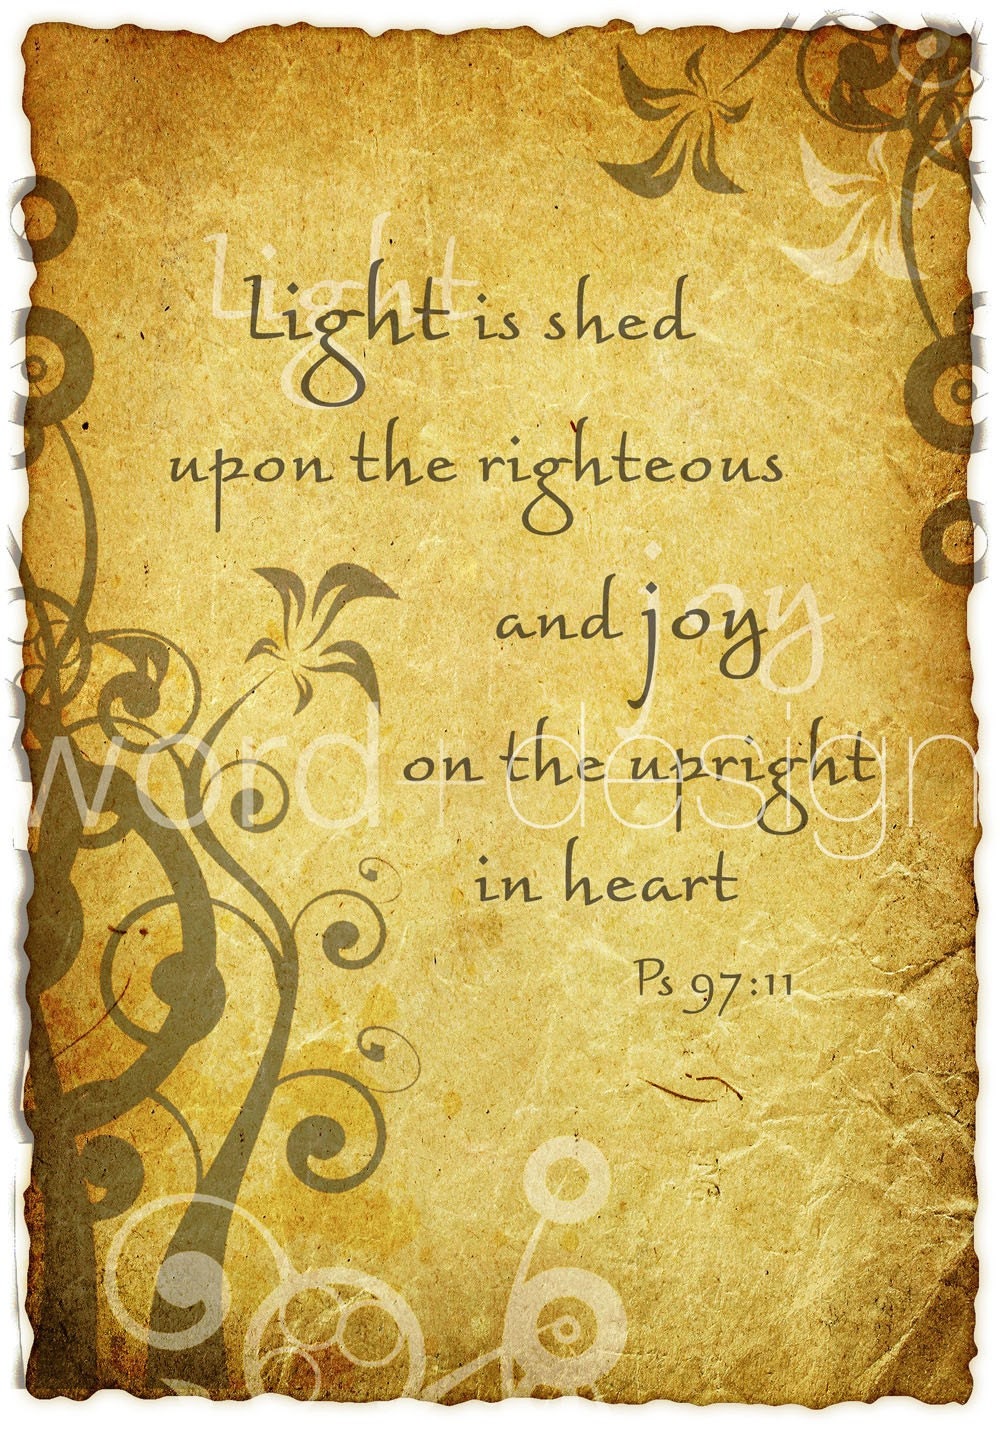 Light is shed
upon the righteous
and joy
word+design
on the upright
in heart
Ps 97:11